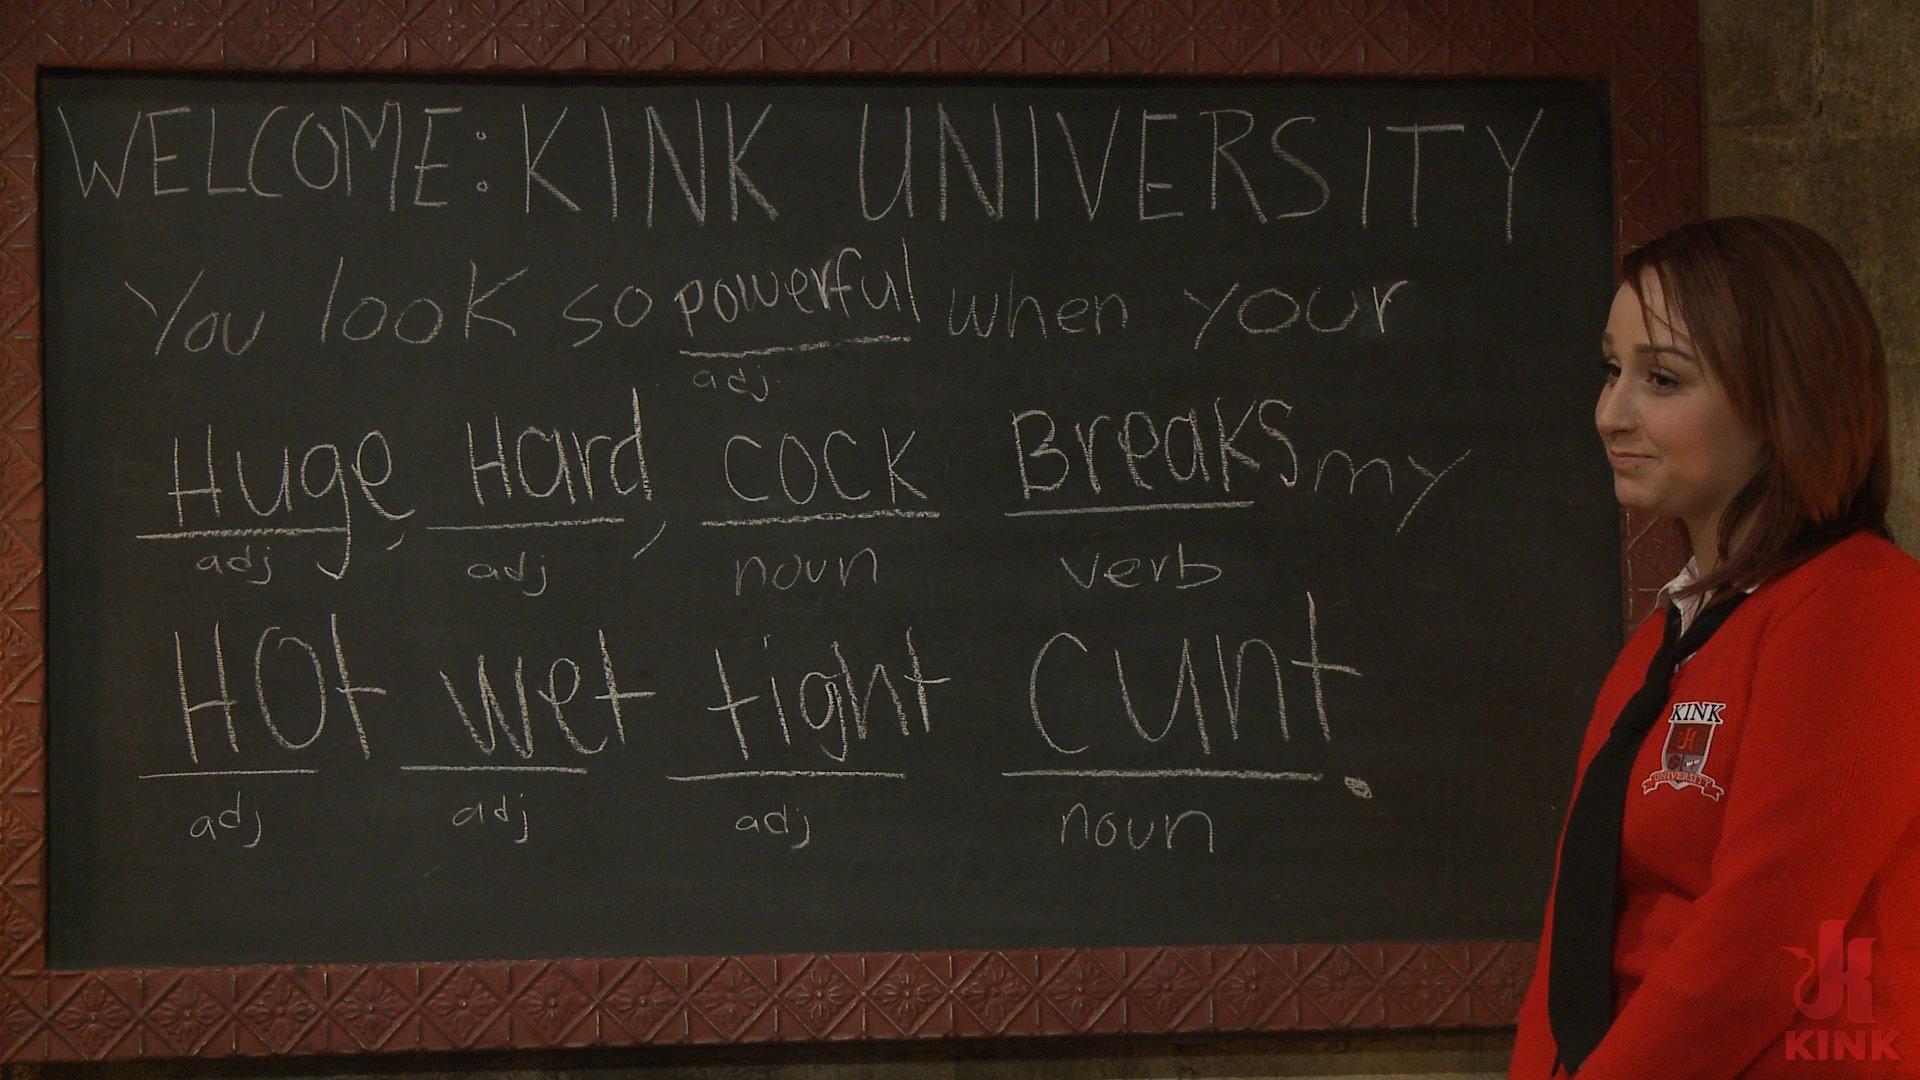 WELCOME: KINK UNIVERSITY
You look so powerful when your
adj.
Huge, Hard, cock Breaks my
adj adj noun verb
HOt wet tight cunt.
adj adj adj noun
KINK
UNIVERSITY
KINK